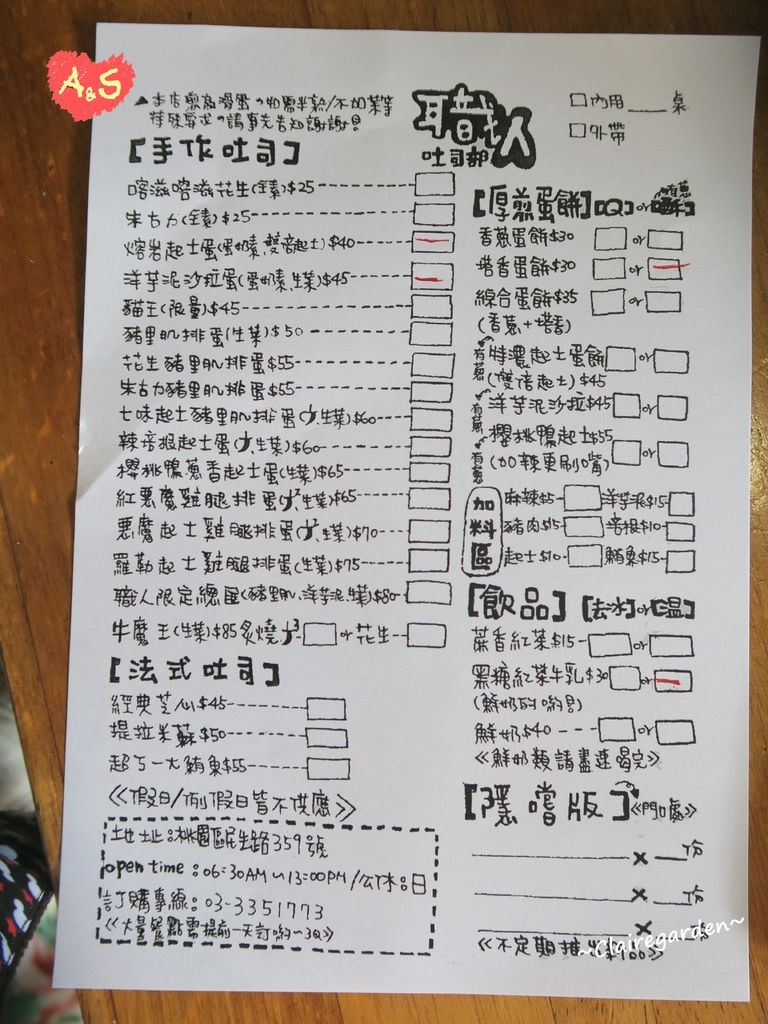 A&S
▲本店煎為滑蛋,如需半熟/不加菜等
特殊要求,請事先告知謝謝!
職人
吐司部
□內用___桌
□外帶
【手作吐司】
喀滋喀滋花生(全素)$25
朱古力(全素)$25
熔岩起士蛋(蛋奶素、雙倍起士)$40
洋芋泥沙拉蛋(蛋奶素、生菜)$45
貓王(限量)$45
豬里肌排蛋(生菜)$50
花生豬里肌排蛋$55
朱古力豬里肌排蛋$55
七味起士豬里肌排蛋(生菜)$60
辣培根起士蛋(生菜)$60
櫻桃鴨蔥香起士蛋(生菜)$65
紅惡魔雞腿排蛋(生菜)$65
惡魔起士雞腿排蛋(生菜)$70
羅勒起士雞腿排蛋(生菜)$75
職人限定總匯(豬里肌、洋芋泥、生菜)$80
牛魔王(生菜)$85炙燒 or 花生
【法式吐司】
經典芝心$45
提拉米蘇$50
超ㄎㄧㄤ鮪魚$55
《假日/例假日皆不供應》
地址:桃園區民生路359號
open time:06:30AM~13:00PM/公休:日
訂購專線:03-3351773
《大量餐點需提前一天訂喲~3Q》
【厚煎蛋餅】【Q】or【酥】
香蔥蛋餅$30 or
塔香蛋餅$30 or
綜合蛋餅$35 or
(香蔥+塔香)
有蔥 特濃起士蛋餅 or
(雙倍起士)$45
有蔥 洋芋泥沙拉$45 or
有蔥 櫻桃鴨起士$55 or
(加辣更刷嘴)
加料區
麻辣$5 洋芋泥$15
豬肉$15 培根$10
起士$10 鮪魚$15
【飲品】【去冰】or【溫】
蔗香紅茶$15 or
黑糖紅茶牛乳$30 or
(鮮奶的喲!)
鮮奶$40 or
《鮮奶類請盡速喝完》
【隱嚐版】《門口處》
×___份
×___份
×___份
《不定期推出$100》
~Clairegarden~